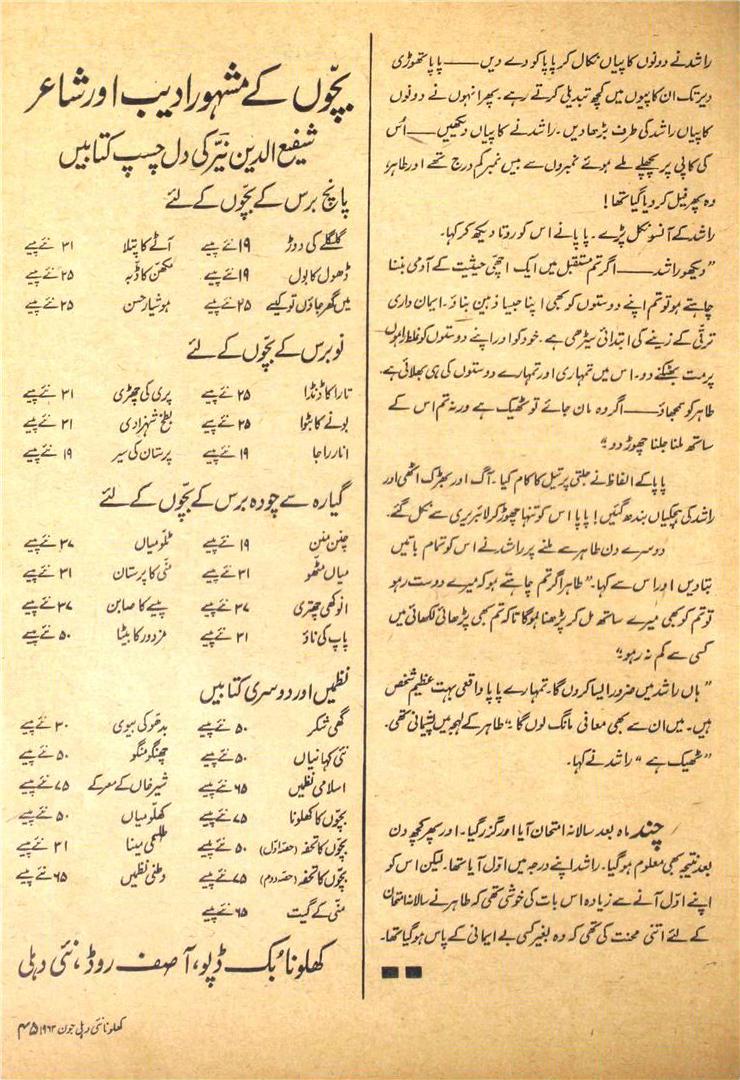 راشد نے دونوں کاپیاں نکال کر پاپا کو دے دیں —— پاپا تھوڑی
دیر تک ان کاپیوں میں کچھ تبدیلی کرتے رہے۔ پھر انہوں نے دونوں
کاپیاں راشد کی طرف بڑھا دیں۔ راشد نے کاپیاں دیکھیں —— اُس
کی کاپی پر پچھلے ملے ہوئے نمبروں سے بیس نمبر کم درج تھے اور طاہر؛
وہ پھر فیل کر دیا گیا تھا!
راشد کے آنسو نکل پڑے۔ پاپا نے اس کو روتا دیکھ کر کہا۔
"دیکھو راشد —— اگر تم مستقبل میں ایک اچھی حیثیت کے آدمی بننا
چاہتے ہو تو تم اپنے دوستوں کو بھی اپنا جیسا ذہین بناؤ۔ ایمان داری
ترقّی کے زینے کی ابتدائی سیڑھی ہے۔ خود کو اور اپنے دوستوں کو غلط راہوں
پر مت بھٹکنے دو۔ اس میں تمہاری اور تمہارے دوستوں کی ہی بھلائی ہے۔
طاہر کو سمجھاؤ —— اگر وہ مان جائے تو ٹھیک ہے ورنہ تم اس کے
ساتھ ملنا جلنا چھوڑ دو۔"
پاپا کے الفاظ نے جلتی پر تیل کا کام کیا۔ آگ اور بھڑک اٹھی اور
راشد کی ہچکیاں بندھ گئیں! پاپا اس کو تنہا چھوڑ کر لائبریری سے نکل گئے۔
دوسرے دن طاہر سے ملنے پر راشد نے اس کو تمام باتیں
بتا دیں اور اس سے کہا۔ "طاہر اگر تم چاہتے ہو کہ میرے دوست رہو
تو تم کو بھی میرے ساتھ مل کر پڑھنا ہوگا تاکہ تم بھی پڑھائی لکھائی میں
کسی سے کم نہ رہو۔"
"ہاں راشد میں ضرور ایسا کروں گا۔ تمہارے پاپا واقعی بہت عظیم شخص
ہیں۔ میں ان سے بھی معافی مانگ لوں گا۔" طاہر کے لہجہ میں پشیمانی تھی۔
"ٹھیک ہے" راشد نے کہا۔
چند ماہ بعد سالانہ امتحان آیا اور گزر گیا۔ اور پھر کچھ دن
بعد نتیجہ بھی معلوم ہوگیا۔ راشد اپنے درجہ میں اوّل آیا تھا۔ لیکن اس کو
اپنے اوّل آنے سے زیادہ اس بات کی خوشی تھی کہ طاہر نے سالانہ امتحان
کے لئے اتنی محنت کی تھی کہ وہ بغیر کسی بے ایمانی کے پاس ہوگیا تھا۔
بچّوں کے مشہور ادیب اور شاعر
شفیع الدین نیّر کی دل چسپ کتابیں
پانچ برس کے بچّوں کے لئے
گلگلے کی دوڑ ۱۹ نئے پیسے آٹے کا پتلا ۳۱ نئے پیسے
ڈھول کا پول ۱۹ نئے پیسے مکھن کا ڈبّہ ۲۵ نئے پیسے
میں گھر جاؤں تو کیسے ۲۵ نئے پیسے ہوشیار حسن ۲۵ نئے پیسے
نو برس کے بچّوں کے لئے
تارا کا ڈنڈا ۲۵ نئے پیسے پری کی چھڑی ۳۱ نئے پیسے
بونے کا بٹوا ۲۵ نئے پیسے بطخ شہزادی ۳۱ نئے پیسے
انار راجا ۱۹ نئے پیسے پرستان کی سیر ۱۹ نئے پیسے
گیارہ سے چودہ برس کے بچّوں کے لئے
چنن منن ۱۹ نئے پیسے ملّو میاں ۳۷ نئے پیسے
میاں مٹھو ۳۱ نئے پیسے منّی کا پرستان ۳۱ نئے پیسے
انوکھی چھتری ۳۷ نئے پیسے پیسے کا صابن ۳۷ نئے پیسے
پاپ کی ناؤ ۳۱ نئے پیسے مزدور کا بیٹا ۵۰ نئے پیسے
نظمیں اور دوسری کتابیں
گھی شکر ۵۰ نئے پیسے بدھو کی بیوی ۳۰ نئے پیسے
نئی کہانیاں ۵۰ نئے پیسے چھنگو منگو ۵۰ نئے پیسے
اسلامی نظمیں ۶۵ نئے پیسے شیر خاں کے معرکے ۷۵ نئے پیسے
بچّوں کا کھلونا ۷۵ نئے پیسے کھلو میاں ۵۰ نئے پیسے
بچّوں کا تحفہ (حصّہ اوّل) ۵۰ نئے پیسے طلسمی مینا ۳۱ نئے پیسے
بچّوں کا تحفہ (حصّہ دوم) ۷۵ نئے پیسے وطنی نظمیں ۶۵ نئے پیسے
منّی کے گیت ۶۵ نئے پیسے
کھلونا بُک ڈپو، آصف روڈ، نئی دہلی
کھلونا نئی دہلی جون ۱۹۶۳ ۴۵